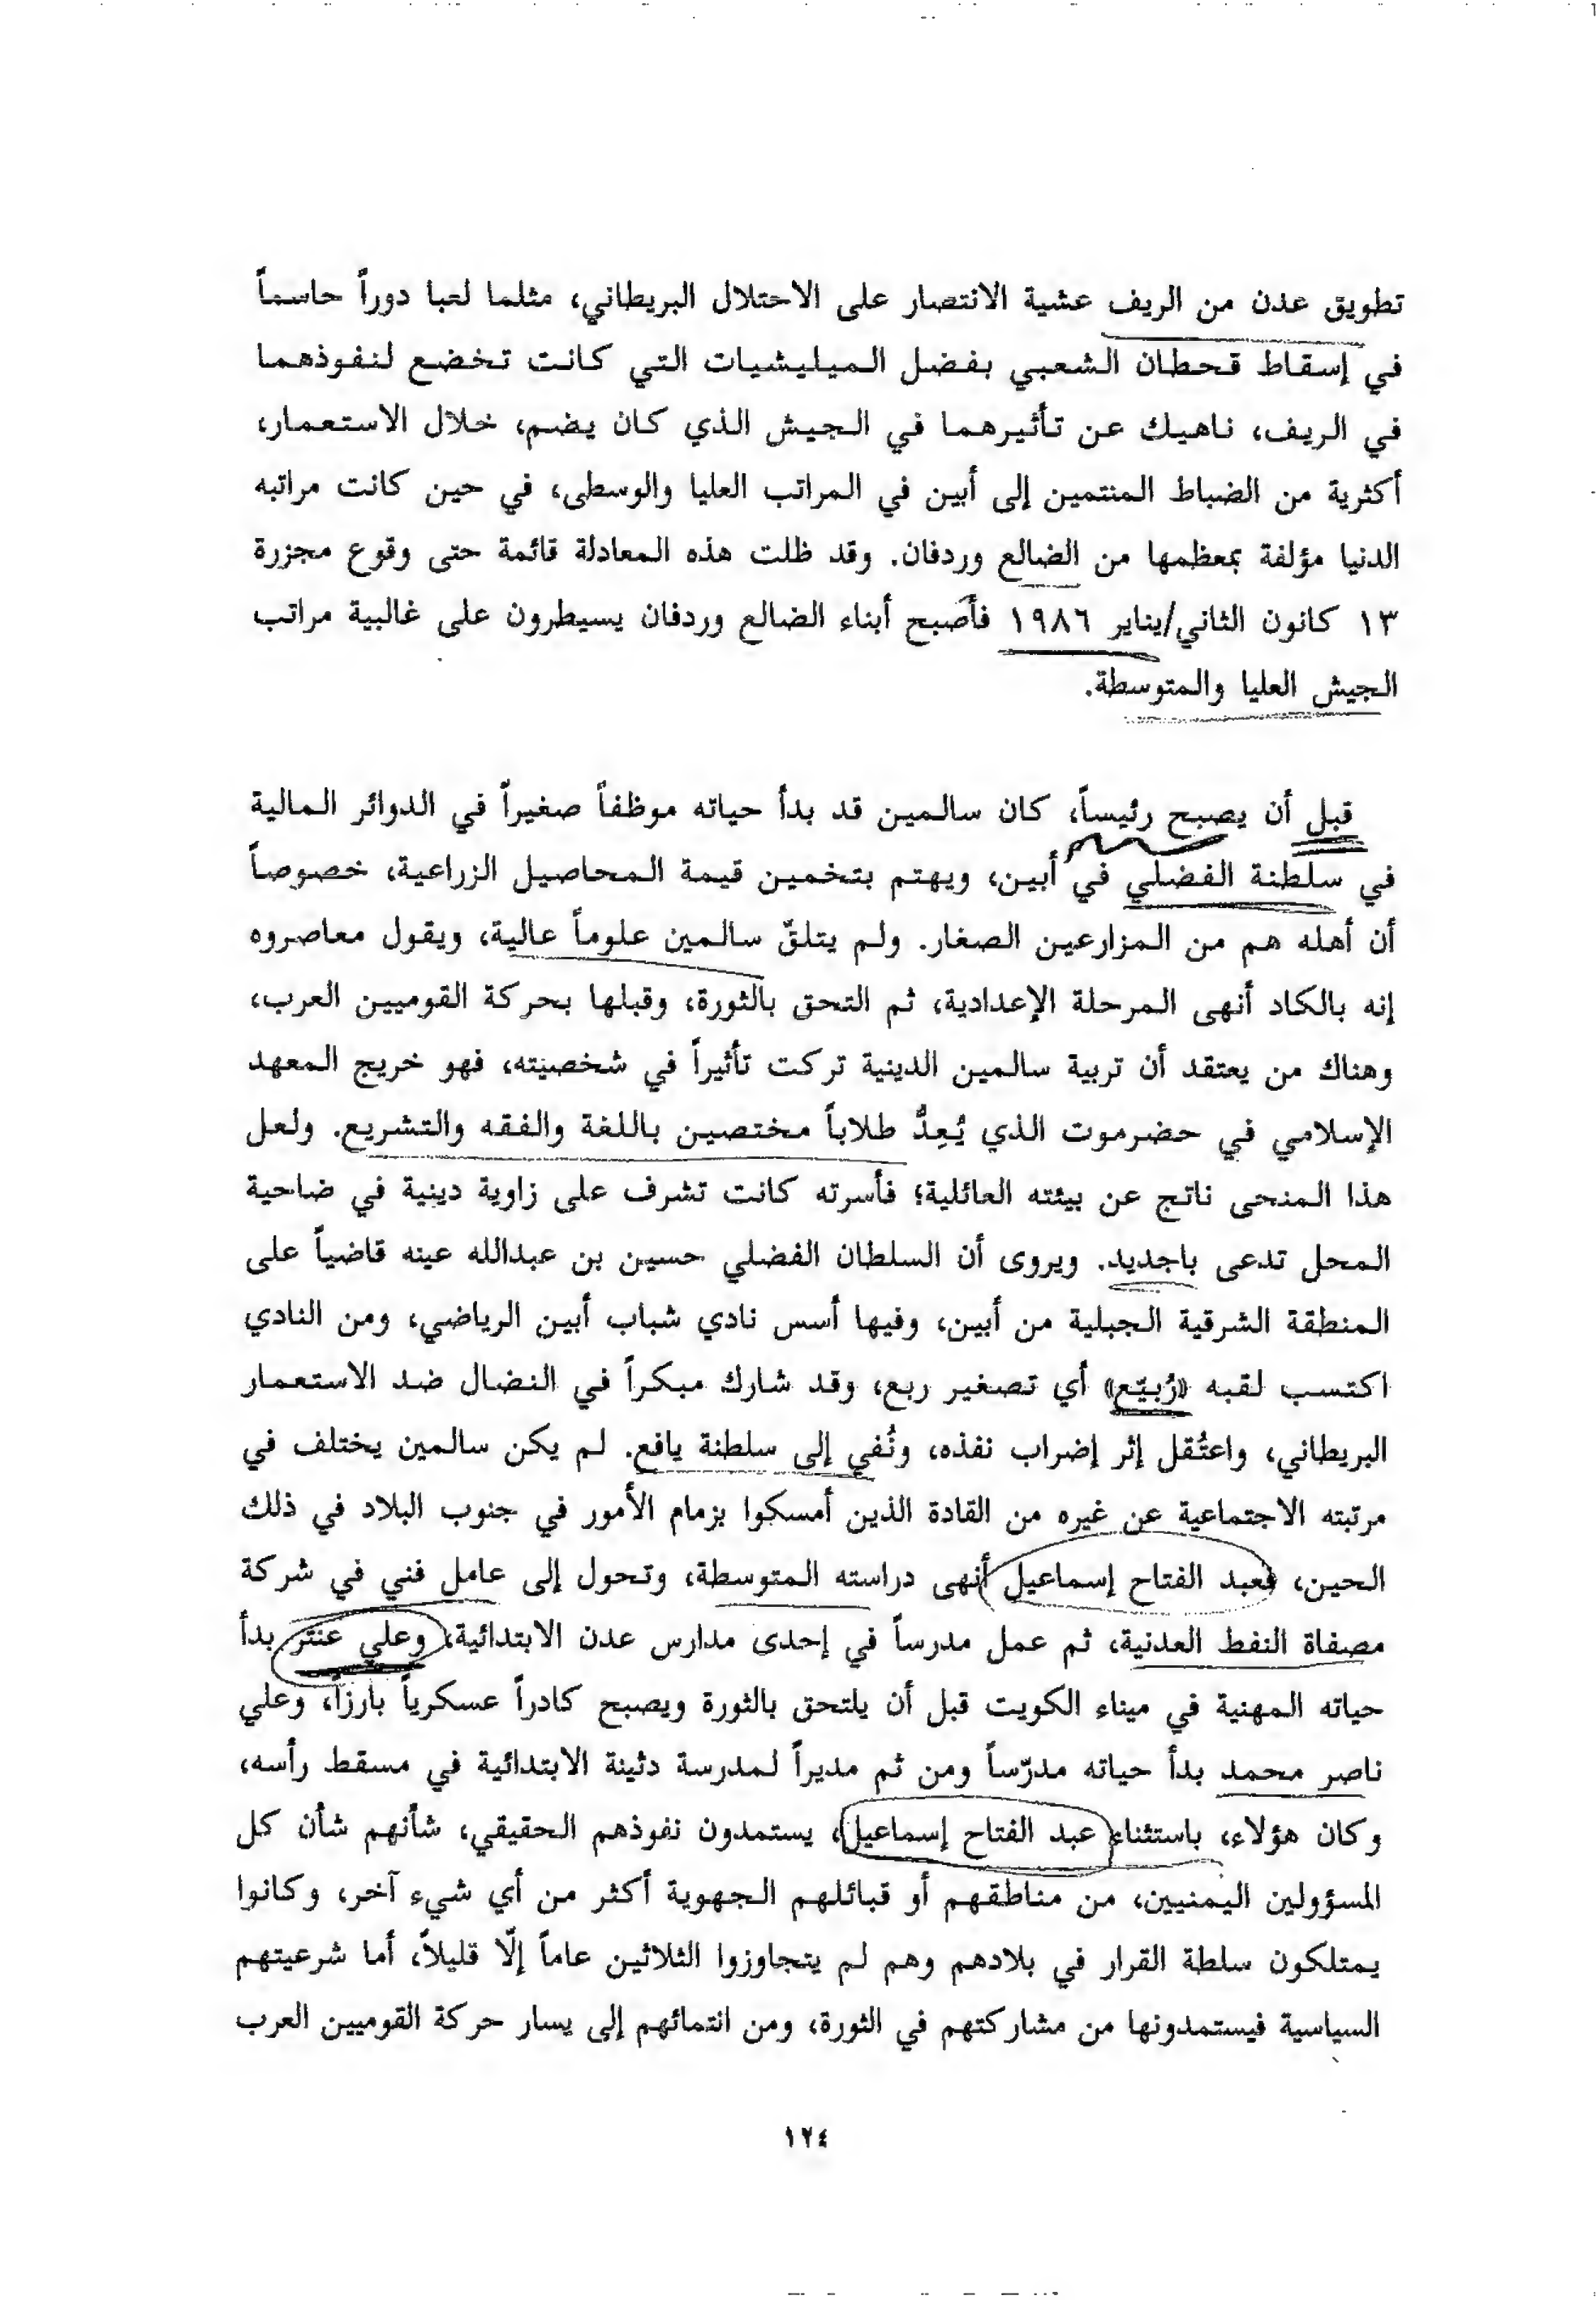 تطويق عدن من الريف عشية الانتصار على الاحتلال البريطاني، مثلما لعبا دوراً حاسماً
في إسقاط قحطان الشعبي بفضل الميليشيات التي كانت تخضع لنفوذهما
في الريف، ناهيك عن تأثيرهما في الجيش الذي كان يضم، خلال الاستعمار،
أكثرية من الضباط المنتمين إلى أبين في المراتب العليا والوسطى، في حين كانت مراتبه
الدنيا مؤلفة بمعظمها من الضالع وردفان. وقد ظلت هذه المعادلة قائمة حتى وقوع مجزرة
١٣ كانون الثاني/يناير ١٩٨٦ فأصبح أبناء الضالع وردفان يسيطرون على غالبية مراتب
الجيش العليا والمتوسطة.
قبل أن يصبح رئيساً، كان سالمين قد بدأ حياته موظفاً صغيراً في الدوائر المالية
في سلطنة الفضلي في أبين، ويهتم بتخمين قيمة المحاصيل الزراعية، خصوصاً
أن أهله هم من المزارعين الصغار. ولم يتلقّ سالمين علوماً عالية، ويقول معاصروه
إنه بالكاد أنهى المرحلة الإعدادية، ثم التحق بالثورة، وقبلها بحركة القوميين العرب،
وهناك من يعتقد أن تربية سالمين الدينية تركت تأثيراً في شخصيته، فهو خريج المعهد
الإسلامي في حضرموت الذي يُعِدُّ طلاباً مختصين باللغة والفقه والتشريع. ولعل
هذا المنحى ناتج عن بيئته العائلية؛ فأسرته كانت تشرف على زاوية دينية في ضاحية
المحل تدعى باجديد. ويروى أن السلطان الفضلي حسين بن عبدالله عينه قاضياً على
المنطقة الشرقية الجبلية من أبين، وفيها أسس نادي شباب أبين الرياضي، ومن النادي
اكتسب لقبه «رُبيّع» أي تصغير ربع، وقد شارك مبكراً في النضال ضد الاستعمار
البريطاني، واعتُقل إثر إضراب نفذه، ونُفي إلى سلطنة يافع. لم يكن سالمين يختلف في
مرتبته الاجتماعية عن غيره من القادة الذين أمسكوا بزمام الأمور في جنوب البلاد في ذلك
الحين، فعبد الفتاح إسماعيل أنهى دراسته المتوسطة، وتحول إلى عامل فني في شركة
مصفاة النفط العدنية، ثم عمل مدرساً في إحدى مدارس عدن الابتدائية، وعلي عنتر بدأ
حياته المهنية في ميناء الكويت قبل أن يلتحق بالثورة ويصبح كادراً عسكرياً بارزاً، وعلي
ناصر محمد بدأ حياته مدرّساً ومن ثم مديراً لمدرسة دثينة الابتدائية في مسقط رأسه،
وكان هؤلاء، باستثناء عبد الفتاح إسماعيل، يستمدون نفوذهم الحقيقي، شأنهم شأن كل
المسؤولين اليمنيين، من مناطقهم أو قبائلهم الجهوية أكثر من أي شيء آخر، وكانوا
يمتلكون سلطة القرار في بلادهم وهم لم يتجاوزوا الثلاثين عاماً إلّا قليلاً، أما شرعيتهم
السياسية فيستمدونها من مشاركتهم في الثورة، ومن انتمائهم إلى يسار حركة القوميين العرب
١٢٤